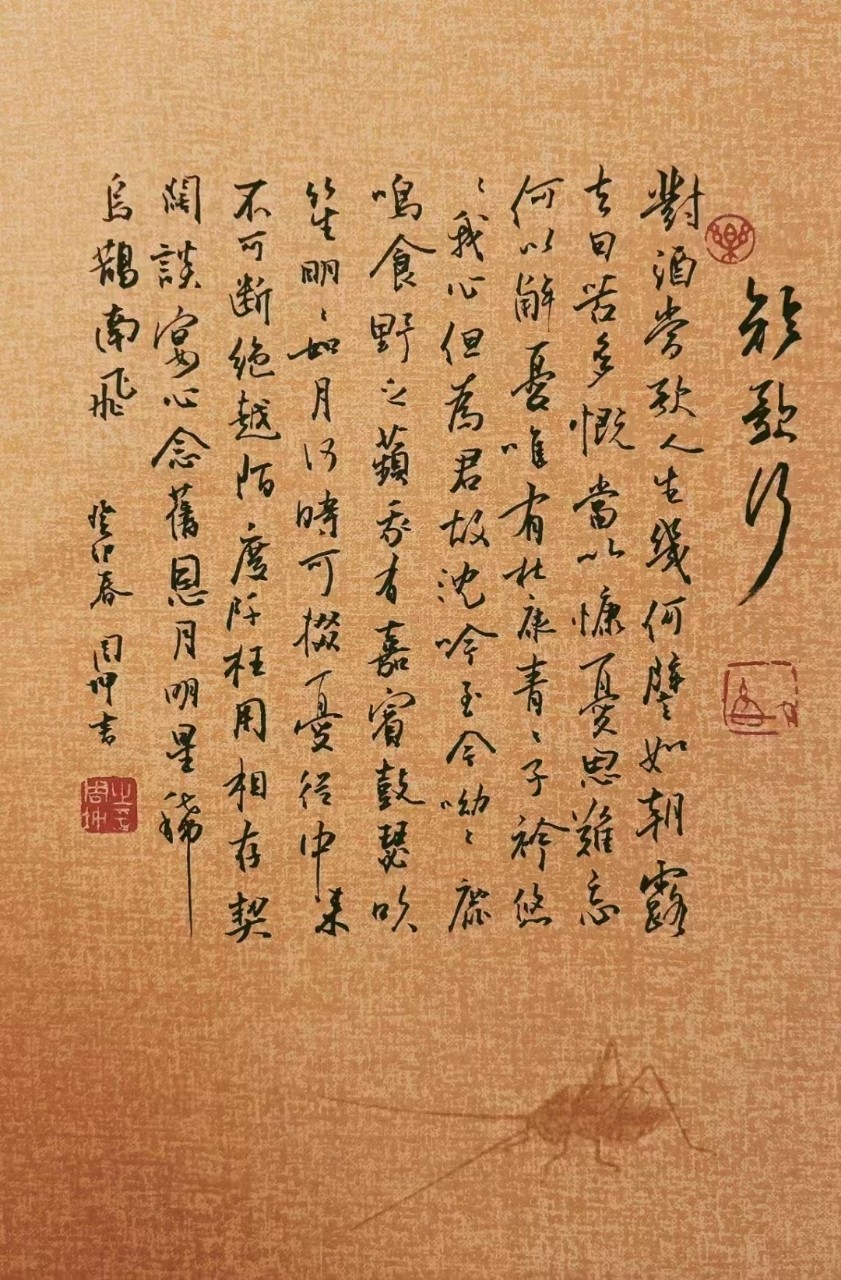 短歌行
對酒當歌人生幾何譬如朝露
去日苦多慨當以慷憂思難忘
何以解憂唯有杜康青〻子衿悠
〻我心但為君故沈吟至今呦〻鹿
鳴食野之蘋我有嘉賓鼓瑟吹
笙明〻如月何時可掇憂從中來
不可斷絕越陌度阡枉用相存契
闊談宴心念舊恩月明星稀
烏鵲南飛 癸卯春 周坤書
周坤